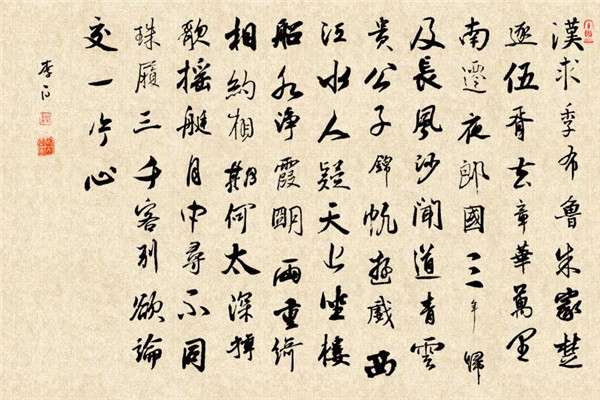 漢求季布魯朱家楚
逐伍胥去章華萬里
南遷夜郎國三年歸
及長風沙聞道青雲
貴公子錦帆遊戲西
江水人疑天上坐樓
船水淨霞明兩重綺
相約相期何太深棹
歌搖艇月中尋不同
珠履三千客別欲論
交一片心
李白